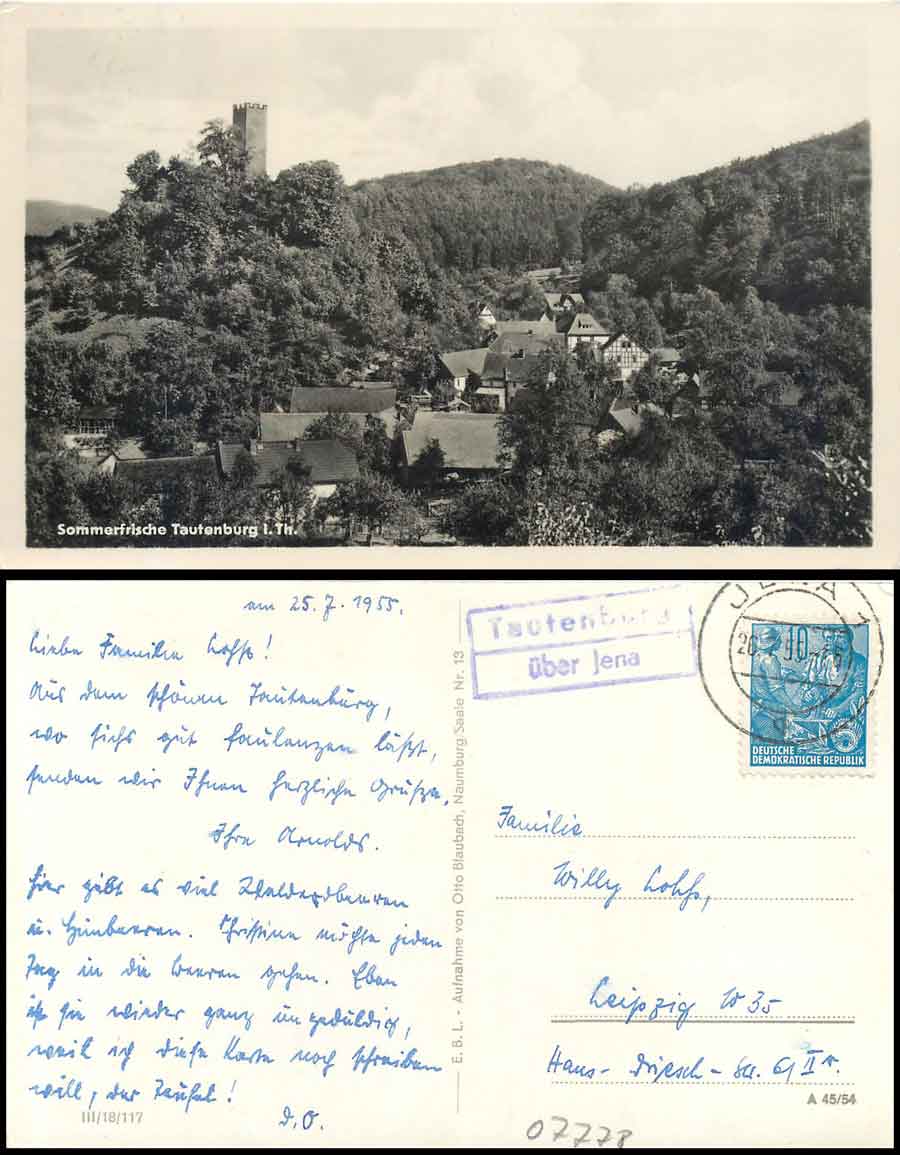 Sommerfrische Tautenburg i. Th.
am 25. 7. 1955.
Liebe Familie Lohse!
Aus dem schönen Tautenburg,
wo sichs gut faulenzen läßt,
senden wir Ihnen herzliche Grüße.
Ihre Arnolds.
Hier gibt es viel Walderdbeeren
u. Himbeeren. Christine möchte jeden
Tag in die Beeren gehen. Eben
ist sie wieder ganz ungeduldig,
weil ich diese Karte noch schreiben
will, der Teufel!
D. O.
III/18/117
E. B. L. - Aufnahme von Otto Blaubach, Naumburg Saale Nr. 13
Tautenburg
über Jena
JENA 1
DEUTSCHE
DEMOKRATISCHE REPUBLIK
10
Familie
Willy Lohse,
Leipzig W 35
Hans-Driesch-Str. 61 II r.
A 45/54
07778